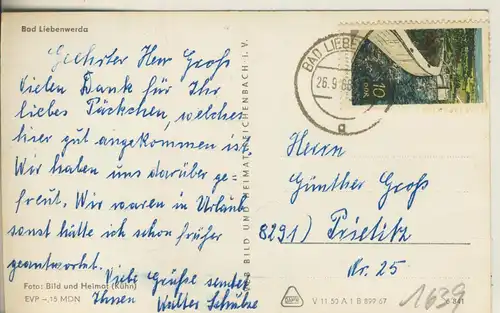 Bad Liebenwerda
Geehrter Herr Groß
Vielen Dank für Ihr
liebes Päckchen, welches
hier gut angekommen ist.
Wir haben uns darüber ge-
freut. Wir waren in Urlaub
sonst hätte ich schon früher
geantwortet.
Viele Grüße sendet
Ihnen Walter Schulze
Foto: Bild und Heimat (Kühn)
EVP –,15 MDN
BILD UND HEIMAT REICHENBACH I. V.
BAD LIEBE
26.9.
a
10
DDR
Herrn
Günther Groß
8291) Prietitz
Nr. 25
V 11 50 A 1 B 899 67
1639